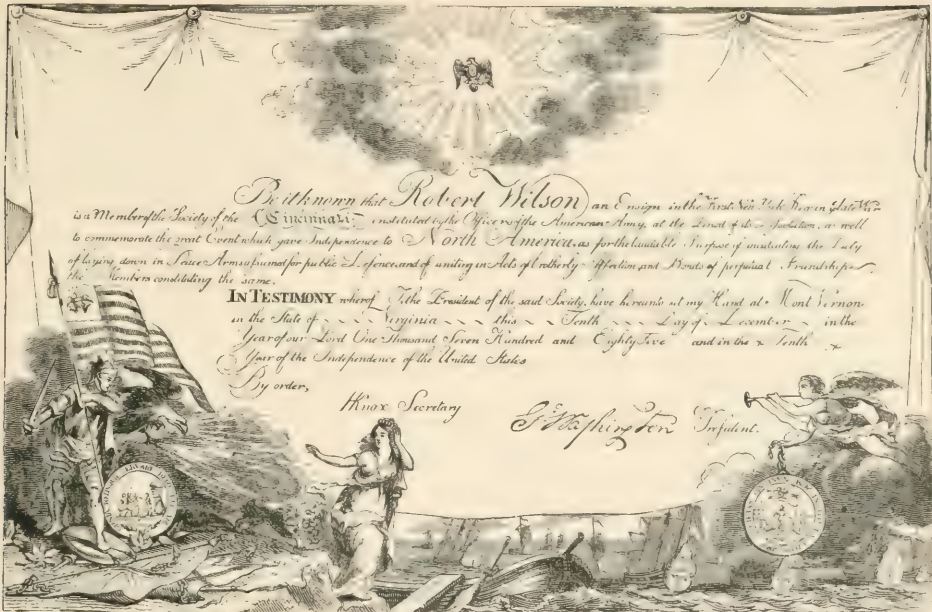 Be it known that Robert Wilson, an Ensign in the First New York Reg. in late War
is a Member of the Society of the Cincinnati instituted by the Officers of the American Army, at the Period of its Dissolution, as well
to commemorate the great Event which gave Independence to North America, as for the laudable Purpose of inculcating the Duty
of laying down in Peace Arms assumed for public Defence, and of uniting in Acts of brotherly Affection, and Bonds of perpetual Friendship
the Members constituting the same.
IN TESTIMONY whereof I, the President of the said Society, have hereunto set my Hand at Mont Vernon
in the State of Virginia this Tenth Day of December in the
Year of our Lord One Thousand Seven Hundred and Eighty Five and in the Tenth
Year of the Independence of the United States
By order,
HKnox Secretary
G. Washington President.